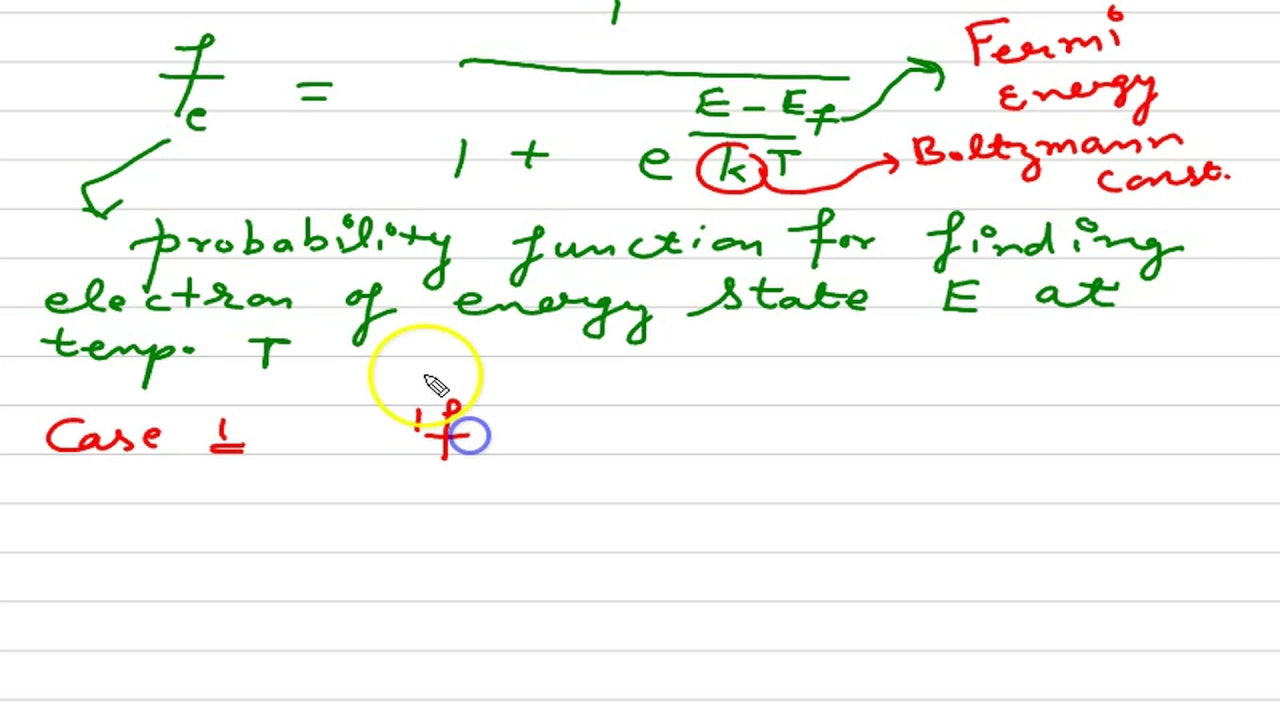 1
fe = 
E - Ef
1 + e kT
Fermi
Energy
Boltzmann
const.
probability function for finding
electron of energy state E at
temp. T
Case 1 if